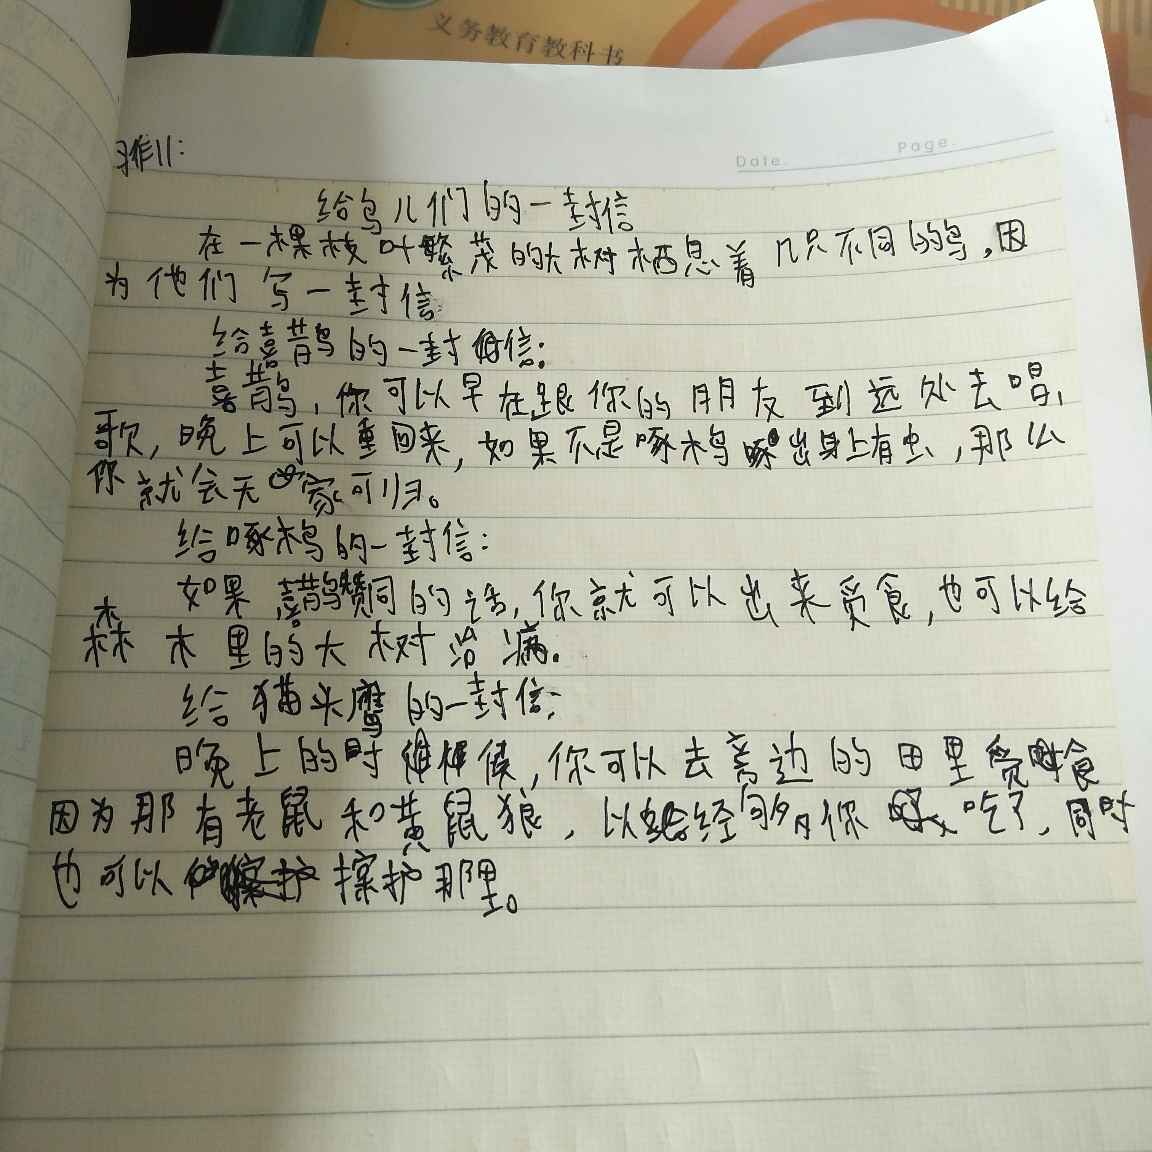 义务教育教科书
Date.
Page.
习作11:
给鸟儿们的一封信
在一棵枝叶繁茂的大树栖息着几只不同的鸟,因
为他们写一封信
给喜鹊的一封信:
喜鹊,你可以早在跟你的朋友到远处去唱
歌,晚上可以重回来,如果不是啄木鸟啄出身上有虫,那么
你就会无家可归。
给啄木鸟的一封信:
如果喜鹊赞同的话,你就可以出来觅食,也可以给
森林木里的大树治病.
给猫头鹰的一封信:
晚上的时候,你可以去旁边的田里觅食
因为那有老鼠和黄鼠狼,以经够你吃了,同时
也可以擦护那里。